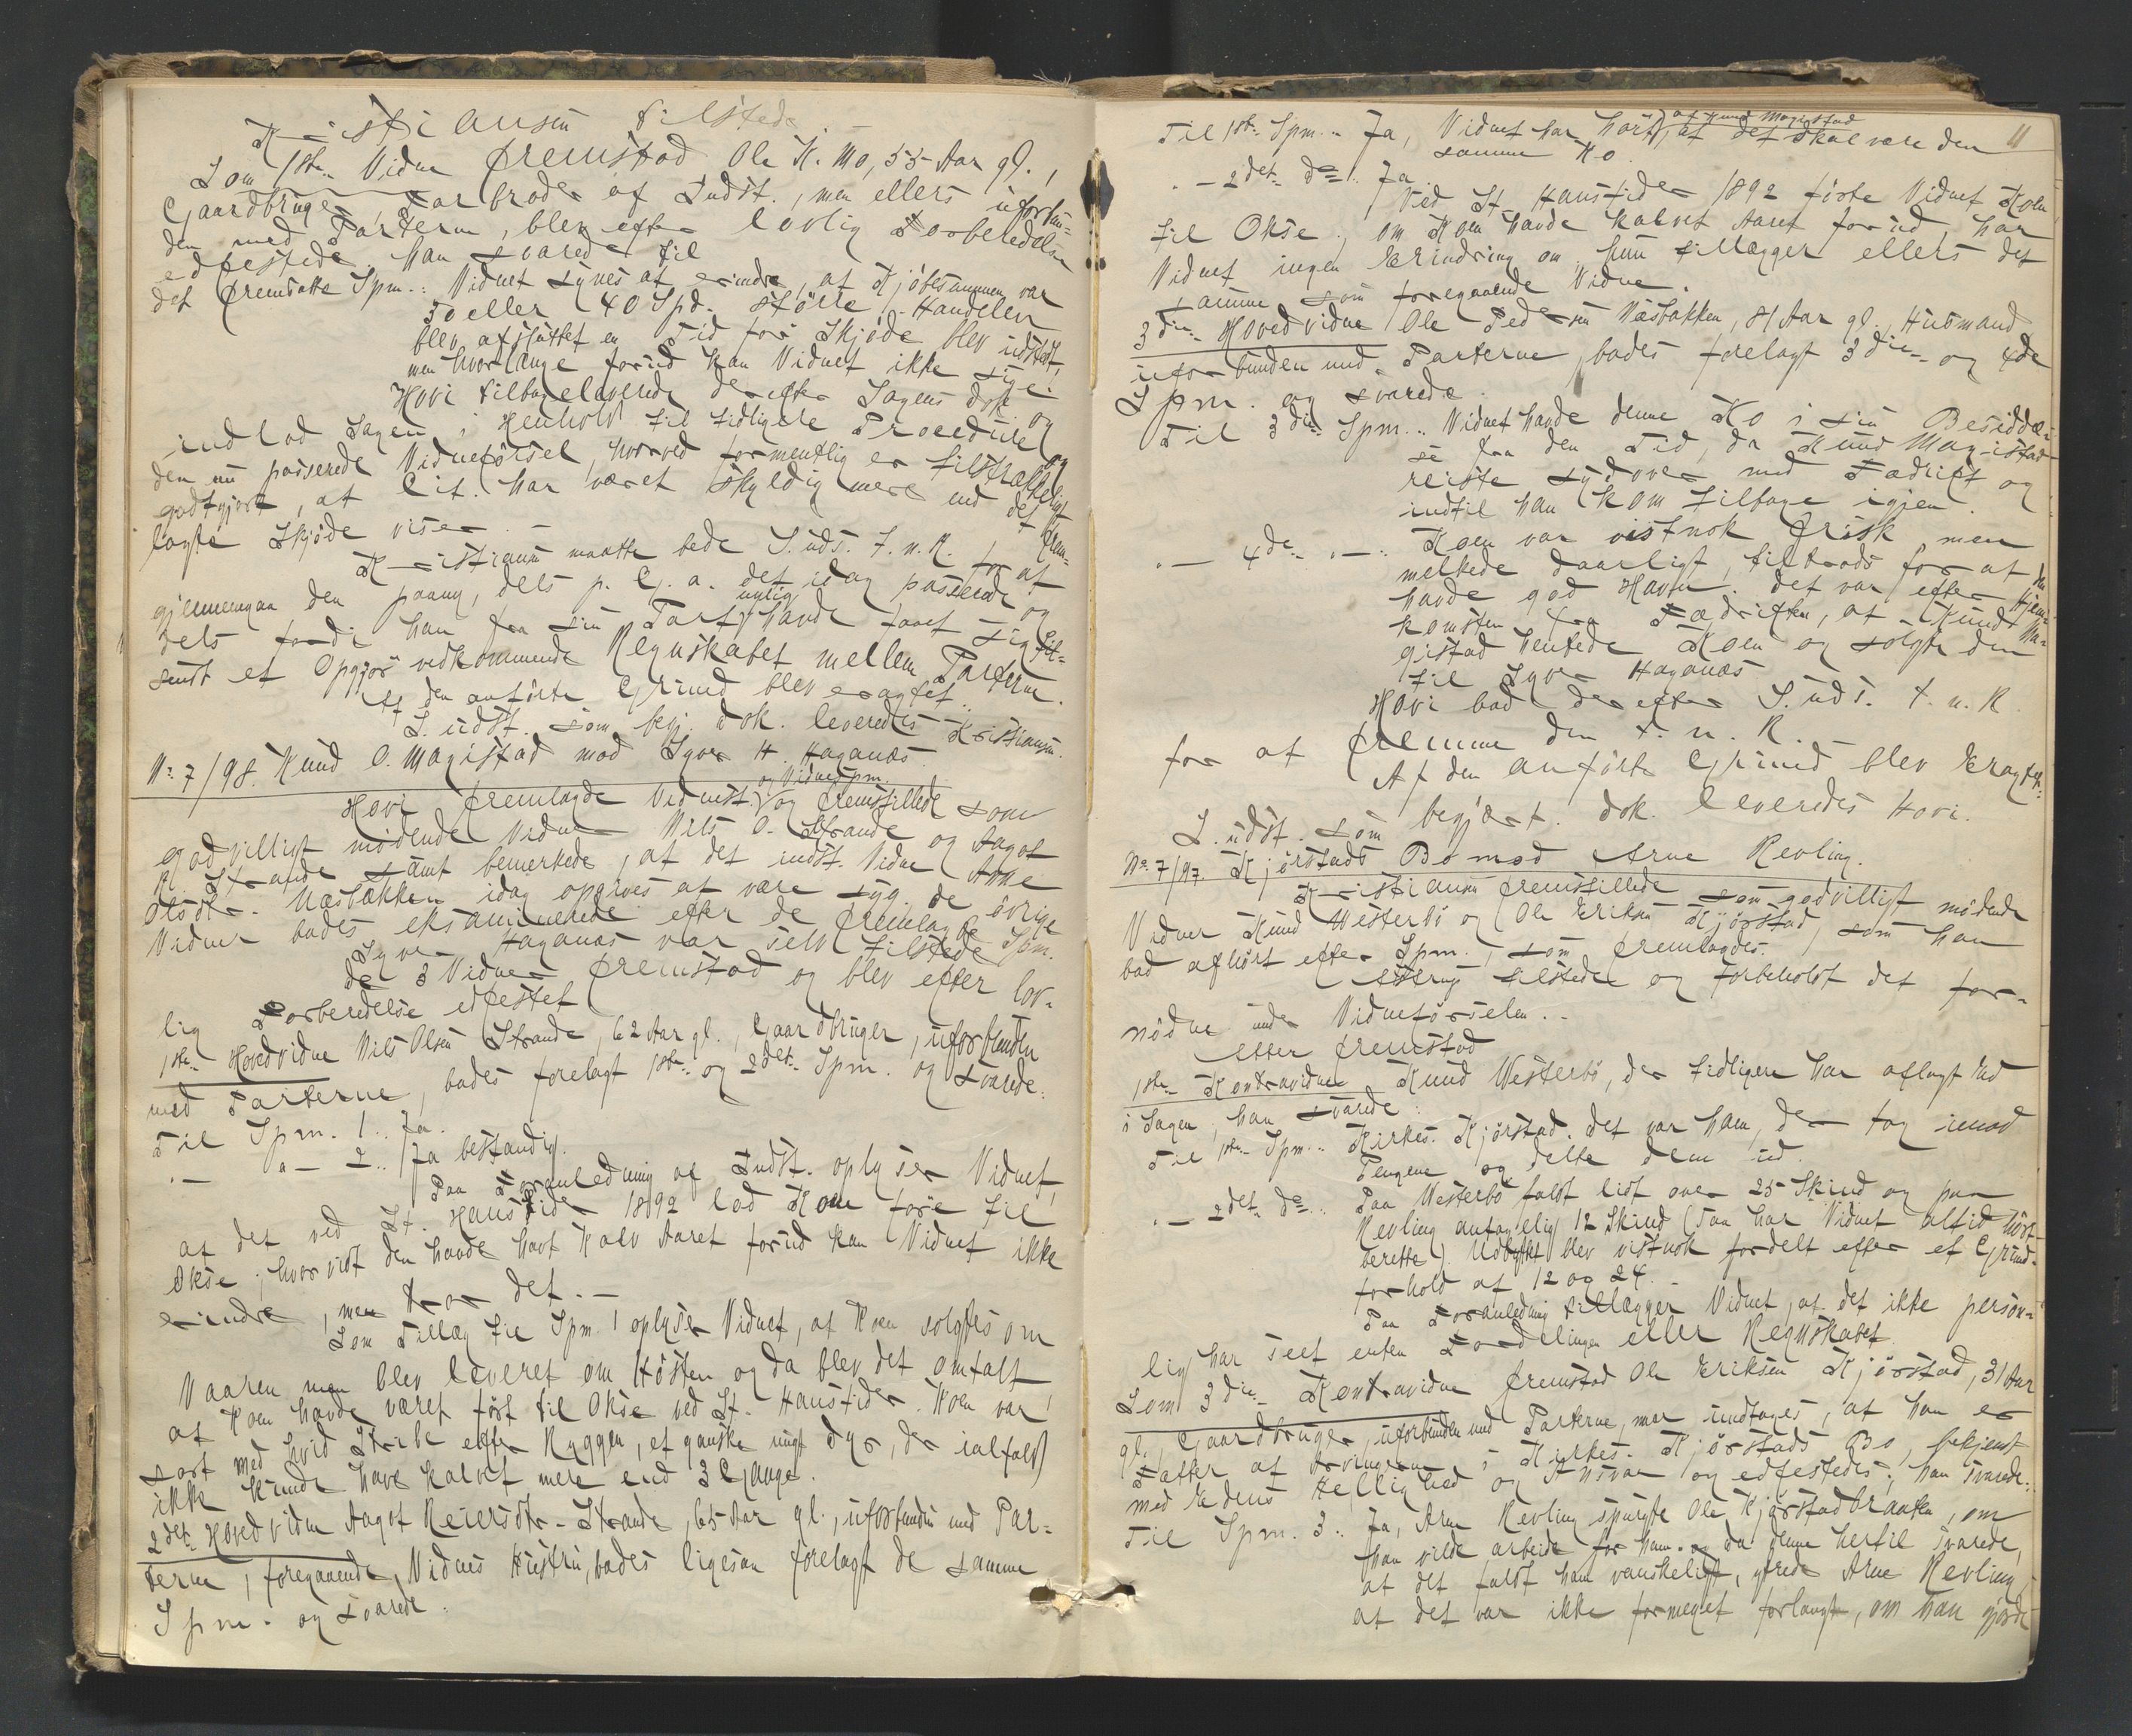 Kristiansen tilstede. –
Som 1ste Vidne fremstod Ole K. Mo, 55 Aar gl.,
Gaardbruger, Farbroder af Indst., men ellers uforbun-
den med Parterne, blev efter lovlig Forberedelse
edfestede. Han svarede til
det fremsatte Spm.: Vidnet synes at erindre, at Kjøbesummen var
30 eller 40 Spd. større. Handelen
blev afsluttet en Tid før Skjøde blev udstedt,
men hvorlænge forud kan Vidnet ikke sige.
Hovi tilbageleverede derefter Sagens dok. og
indlod Sagen i Henhold til tidligere Procedure og
den nu passerede Vidneførsel, hvorved formentlig er tilstrækkeligt
godtgjort, at Cit. har været skyldig mere end det frem-
lagte Skjøde viser. –
Kristiansen maatte bede S. uds. t. n. R. for at
gjennemgaa den paany, dels p. G. a. det idag passerede og
dels fordi han fra sin Part nylig havde faaet sig til-
sendt et Opgjør vedkommende Regnskabet mellem Parterne.
Af den anførte Grund blev eragtet:
S. udst. som begj. dok. leveredes Kristiansen.
No 7/98. Knud O. Magistad mod Syver H. Haganæs.
Hovi fremlagde Vidnest. og Vidnespm. og fremstillede som
godvilligt mødende Vidner Nils O. Strande og Aagot
R. Strande samt bemerkede, at det indst. Vidne Anne
Olsdtr. Næsbakken idag opgives at være syg. De øvrige
Vidner bades eksaminerede efter de fremlagte Spm.
Syver Haganæs var selv tilstede.
De 3 Vidner fremstod og blev efter lov-
lig Forberedelse edfestet
1ste Hovedvidne Nils Olsen Strande, 62 Aar gl., Gaardbruger, uforbunden
med Parterne, bades forelagt 1ste og 2det Spm. og svarede:
Til Spm. 1.: Ja.
"— "— 2.: Ja bestandig.
Paa Foranledning af Indst. oplyser Vidnet,
at det ved St. Hanstider 1892 lod Koen føre til
Okse; hvorvidt den havde havt Kalv Aaret forud kan Vidnet ikke
erindre, men tror det. –
Som Tillæg til Spm. 1 oplyser Vidnet, at Koen solgtes om
Vaaren, men blev leveret om Høsten og da blev det omtalt,
at Koen havde været ført til Okse ved St. Hanstider. Koen var
sort med hvid Stribe efter Ryggen, et ganske ungt Dyr, der ialfald
ikke kunde have kalvet mere end 3 Gange.
2det Hovedvidne Aagot Reiersdtr. Strande, 65 Aar gl., uforbunden med Par-
terne, foregaaende Vidnes Hustru, bades ligesaa forelagt de samme
Spm. og svarede:
11
Til 1ste Spm.: Ja, Vidnet har hørt af Knud Magistad, at det skal være den
samme Ko.
"— 2det do: Ja
Ved St. Hanstider 1892 førte Vidnet Koen
til Okse; om Koen havde kalvet Aaret forud, har
Vidnet ingen Erindring om. Hun tillægger ellers det
samme som foregaaende Vidne.
3die Hovedvidne Ole Pedersen Næsbakken, 81 Aar gl., Husmand
uforbunden med Parterne, bades forelagt 3die og 4de
Spm. og svarede:
Til 3die Spm.: Vidnet havde denne Ko i sin Besiddel-
se fra den Tid, da Knud Magistad
reiste sydover med Fædrift og
indtil han kom tilbage igjen.
"— 4de "—: Koen var vistnok frisk, men
melkede daarligt, tiltrods for at den
havde god Havn. Det var efter Hjem-
komsten fra Fædriften, at Knud Ma-
gistad hentede Koen og solgte den
til Syver Haganæs
Hovi bad derefter S. uds. t. n. R.
for at fremme den t. n. R. –
Af den anførte Grund blev Eragtet:
S. udst. som begjært. dok. leveredes Hovi.
No 7/97. Kjørstads Bo mod Arne Kevling.
Kristiansen fremstillede som godvilligt mødende
Vidner Knud Westerbø og Ole Eriksen Kjørstad, som han
bad afhørt efter Spm., som fremlagdes.
Astrup tilstede og forbeholdt det for-
nødne under Vidneførselen. –
Efter fremstod
1ste Kontravidne Knud Westerbø, der tidligere har aflagt Ed
i Sagen, han svarede:
Til 1ste Spm.: Kirkes. Kjørstad. Det var ham, der tog imod
Pengene og delte dem ud.
"— 2det do: Paa Westerbø faldt lidt over 25 Skind og paa
Kevling antagelig 12 Skind (saa har Vidnet altid hørt
berette). Udbyttet blev vistnok fordelt efter et Grund-
forhold af 12 og 24. –
Paa Foranledning tillægger Vidnet, at det ikke person-
lig har seet enten Fordelingen eller Regnskabet
Som 3die Kontravidne fremstod Ole Eriksen Kjørstad, 31 Aar
gl., Gaardbruger, uforbunden med Parterne, mar undtages, at han er
Fætter af Arvingerne i Kirkes. Kjørstads Bo, bekjendt
med Edens Hellighed og Ansvar og edfestedes; han svarede:
Til Spm. 3.: Ja, Arne Kevling spurgte Ole Kjørstadbraaten, om
han vilde arbeide for ham og da denne hertil svarede,
at det faldt ham vanskeligt, ytrede Arne Kevling,
at det var ikke formeget forlangt, om han gjorde